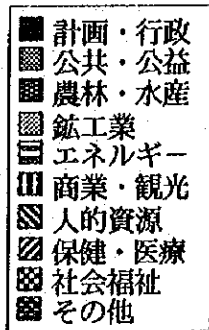 計画・行政
公共・公益
農林・水産
鉱工業
エネルギー
商業・観光
人的資源
保健・医療
社会福祉
その他